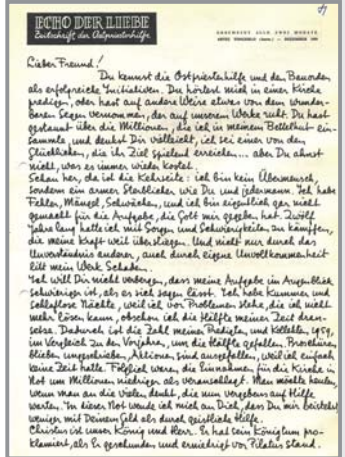 ECHO DER LIEBE
Zeitschrift der Ostpriesterhilfe
ERSCHEINT ALLE ZWEI MONATE
Lieber Freund!
Du kennst die Ostpriesterhilfe und den Bauorden
als erfolgreiche Initiativen. Du hörtest mich in einer Kirche
predigen, oder hast auf andere Weise etwas von dem wunder-
baren Segen vernommen, der auf unserem Werke ruht. Du hast
gestaunt über die Millionen, die ich in meinem Bettelhut ein-
sammle, und denkst Dir vielleicht, ich sei einer von den
Glücklichen, die ihr Ziel spielend erreichen... aber Du ahnst
nicht, was es immer wieder kostet.
Schau her, da ist die Kehrseite: ich bin kein Übermensch,
sondern ein armer Sterblicher wie Du und jedermann. Ich habe
Fehler, Mängel, Schwächen, und ich bin eigentlich gar nicht
gemacht für die Aufgabe, die Gott mir gegeben hat. Zwölf
Jahre lang hatte ich mit Sorgen und Schwierigkeiten zu kämpfen,
die meine Kraft weit übersteigen. Und nicht nur durch das
Unverständnis anderer, auch durch eigene Unvollkommenheit
litt mein Werk Schaden.
Ich will Dir nicht verbergen, dass meine Aufgabe im Augenblick
schwieriger ist, als es sich sagen lässt. Ich habe Kummer und
schlaflose Nächte, weil ich vor Problemen stehe, die ich nicht
mehr lösen kann, obschon ich die Hälfte meiner Zeit dran-
setze. Dadurch ist die Zahl meiner Predigten und Kollekten, 1959,
im Vergleich zu den Vorjahren, um die Hälfte gefallen. Broschüren
blieben ungeschrieben, Aktionen sind ausgefallen, weil ich einfach
keine Zeit hatte. Folglich waren die Einnahmen für die Kirche in
Not um Millionen niedriger als veranschlagt. Man möchte heulen,
wenn man an die vielen denkt, die nun vergebens auf Hilfe
warten. In dieser Not wende ich mich an Dich, dass Du mir beistehst
weniger mit Deinem Geld als durch geistliche Hilfe.
Christus ist unser König und Herr. Er hat sein Königtum pro-
klamiert, als Er geschunden und erniedrigt vor Pilatus stand.